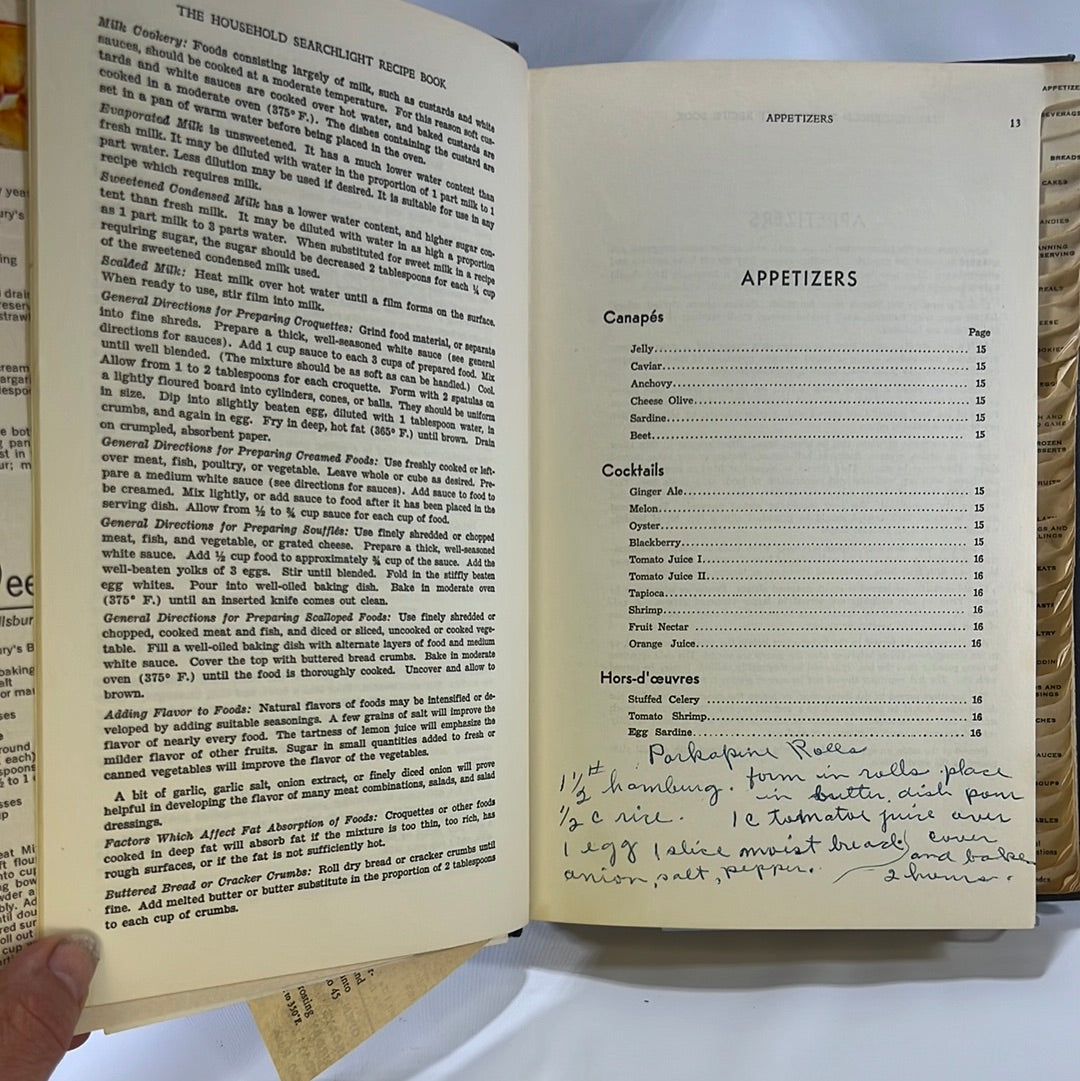 THE HOUSEHOLD SEARCHLIGHT RECIPE BOOK
Milk Cookery: Foods consisting largely of milk, such as custards and white
sauces, should be cooked at a moderate temperature. For this reason soft cus-
tards and white sauces are cooked over hot water, and baked custards are
cooked in a moderate oven (375° F.). The dishes containing the custard are
set in a pan of warm water before being placed in the oven.
Evaporated Milk is unsweetened. It has a much lower water content than
fresh milk. It may be diluted with water in the proportion of 1 part milk to 1
part water. Less dilution may be used if desired. It is suitable for use in any
recipe which requires milk.
Sweetened Condensed Milk has a lower water content, and higher sugar con-
tent than fresh milk. It may be diluted with water in as high a proportion
as 1 part milk to 3 parts water. When substituted for sweet milk in a recipe
requiring sugar, the sugar should be decreased 2 tablespoons for each ¼ cup
of the sweetened condensed milk used.
Scalded Milk: Heat milk over hot water until a film forms on the surface.
When ready to use, stir film into milk.
General Directions for Preparing Croquettes: Grind food material, or separate
into fine shreds. Prepare a thick, well-seasoned white sauce (see general
directions for sauces). Add 1 cup sauce to each 3 cups of prepared food. Mix
until well blended. (The mixture should be as soft as can be handled.) Cool.
Allow from 1 to 2 tablespoons for each croquette. Form with 2 spatulas on
a lightly floured board into cylinders, cones, or balls. They should be uniform
in size. Dip into slightly beaten egg, diluted with 1 tablespoon water, in
crumbs, and again in egg. Fry in deep, hot fat (365° F.) until brown. Drain
on crumpled, absorbent paper.
General Directions for Preparing Creamed Foods: Use freshly cooked or left-
over meat, fish, poultry, or vegetable. Leave whole or cube as desired. Pre-
pare a medium white sauce (see directions for sauces). Add sauce to food to
be creamed. Mix lightly, or add sauce to food after it has been placed in the
serving dish. Allow from ½ to ¾ cup sauce for each cup of food.
General Directions for Preparing Soufflés: Use finely shredded or chopped
meat, fish, and vegetable, or grated cheese. Prepare a thick, well-seasoned
white sauce. Add ½ cup food to approximately ¾ cup of the sauce. Add the
well-beaten yolks of 3 eggs. Stir until blended. Fold in the stiffly beaten
egg whites. Pour into well-oiled baking dish. Bake in moderate oven
(375° F.) until an inserted knife comes out clean.
General Directions for Preparing Scalloped Foods: Use finely shredded or
chopped, cooked meat and fish, and diced or sliced, uncooked or cooked vege-
table. Fill a well-oiled baking dish with alternate layers of food and medium
white sauce. Cover the top with buttered bread crumbs. Bake in moderate
oven (375° F.) until the food is thoroughly cooked. Uncover and allow to
brown.
Adding Flavor to Foods: Natural flavors of foods may be intensified or de-
veloped by adding suitable seasonings. A few grains of salt will improve the
flavor of nearly every food. The tartness of lemon juice will emphasize the
milder flavor of other fruits. Sugar in small quantities added to fresh or
canned vegetables will improve the flavor of the vegetables.
A bit of garlic, garlic salt, onion extract, or finely diced onion will prove
helpful in developing the flavor of many meat combinations, salads, and salad
dressings.
Factors Which Affect Fat Absorption of Foods: Croquettes or other foods
cooked in deep fat will absorb fat if the mixture is too thin, too rich, has
rough surfaces, or if the fat is not sufficiently hot.
Buttered Bread or Cracker Crumbs: Roll dry bread or cracker crumbs until
fine. Add melted butter or butter substitute in the proportion of 2 tablespoons
to each cup of crumbs.
APPETIZERS 13
APPETIZERS
Canapés
Page
Jelly 15
Caviar 15
Anchovy 15
Cheese Olive 15
Sardine 15
Beet 15
Cocktails
Ginger Ale 15
Melon 15
Oyster 15
Blackberry 15
Tomato Juice I 16
Tomato Juice II 16
Tapioca 16
Shrimp 16
Fruit Nectar 16
Orange Juice 16
Hors-d'œuvres
Stuffed Celery 16
Tomato Shrimp 16
Egg Sardine 16
Porkapine Rolls
1½ # hamburg. form in rolls place
½ c rice. in butter dish pour
1 c tomatoe juice over
1 egg 1 slice moist bread) cover
onion, salt, pepper. and bake
2 hours.
BREADS
CAKES